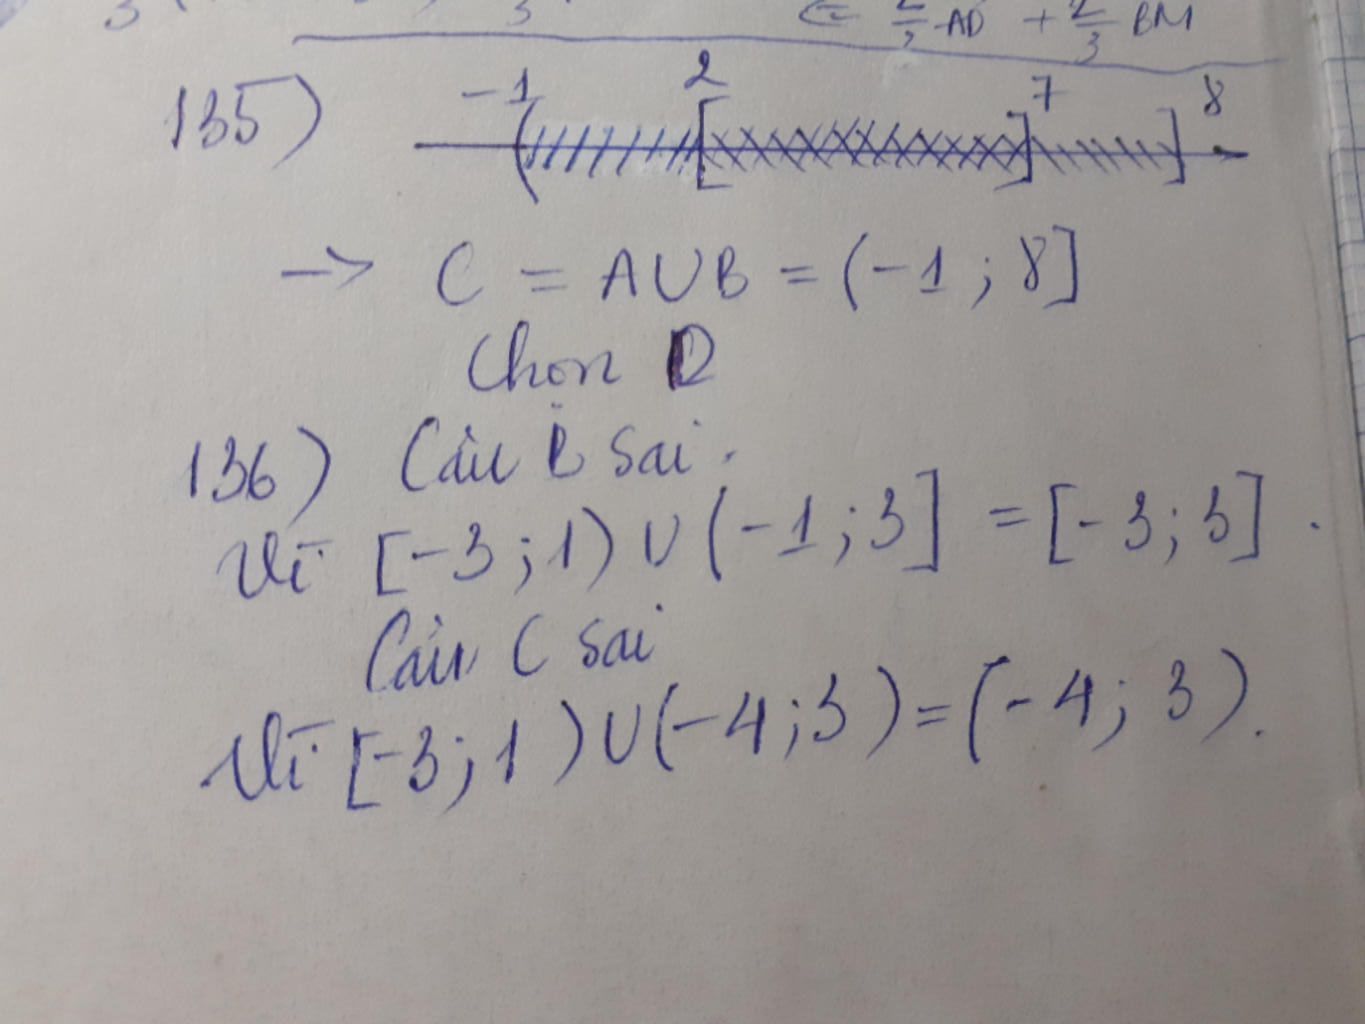 ⇐ 2/3 AD + 2/3 BM
135) -1 2 7 8
→ C = A∪B = (-1 ; 8]
Chọn D
136) Câu B sai.
Vì [-3 ; 1) ∪ (-1 ; 3] = [-3 ; 3].
Câu C sai
Vì [-3 ; 1) ∪ (-4 ; 3) = (-4 ; 3).